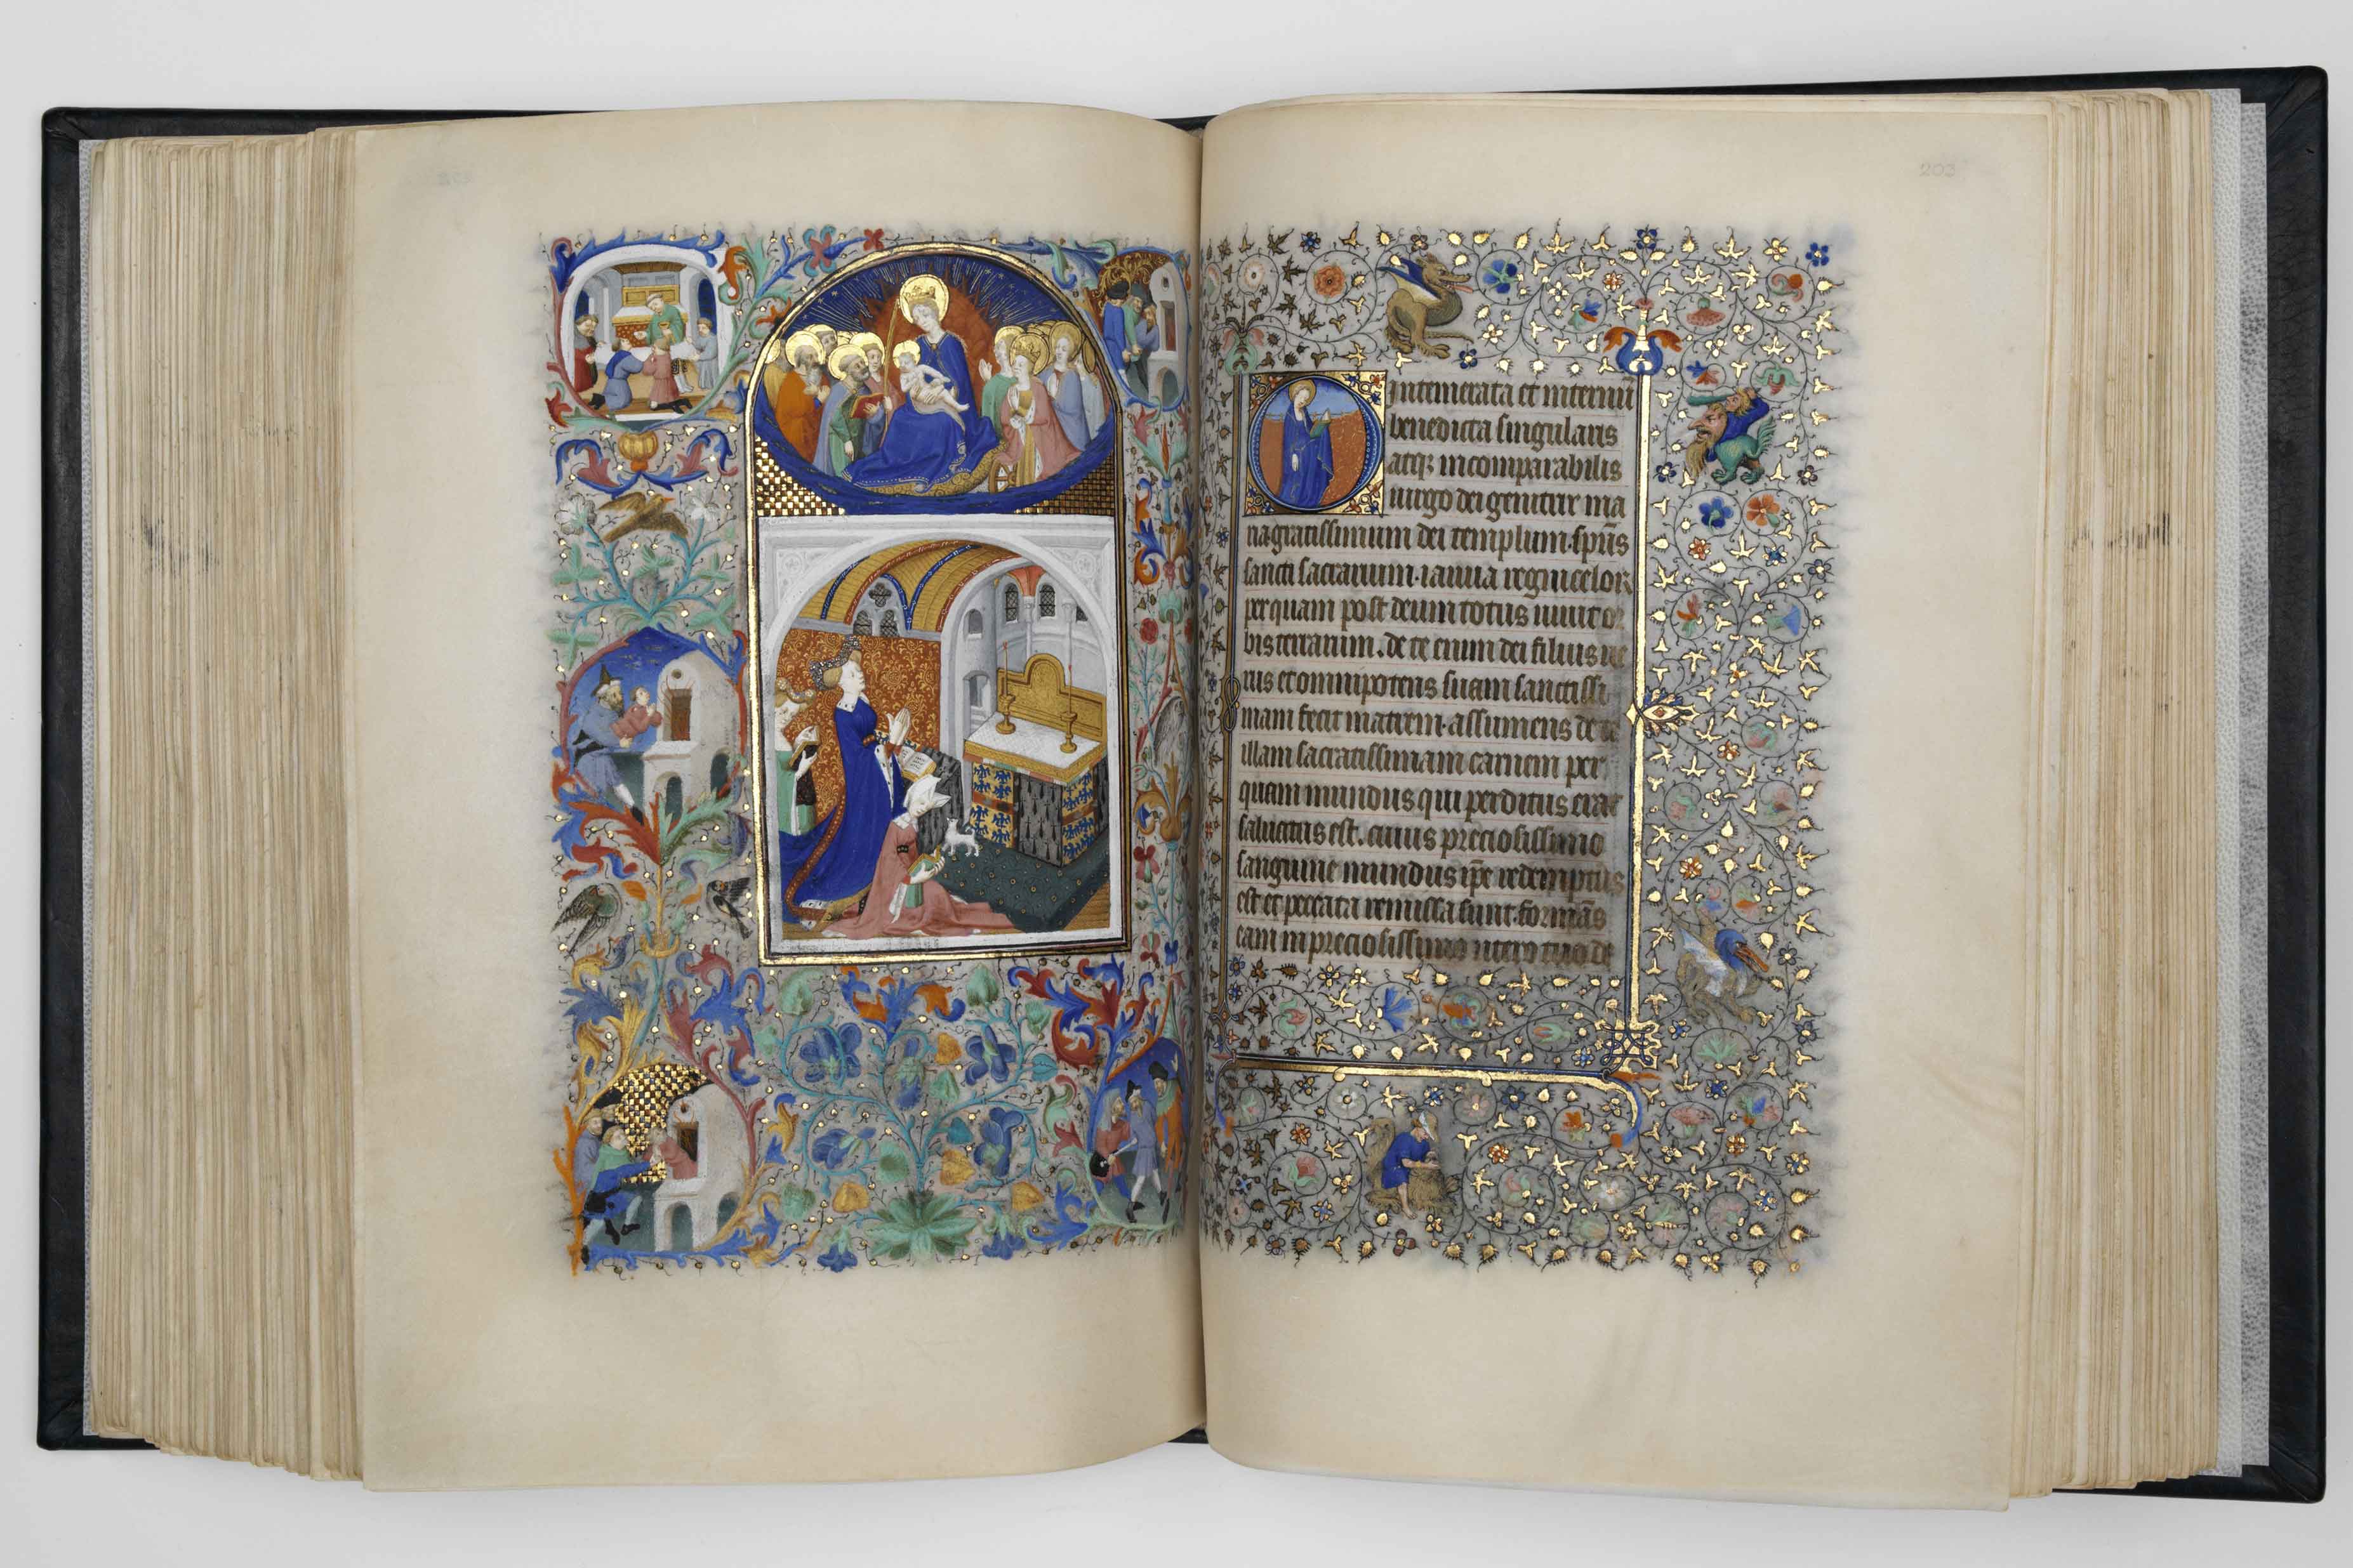 203
O Intemerata et in eternū
benedicta singularis
atqꝫ incomparabilis
uirgo dei genitrix ma
ria gratissimum dei templum. spūs
sancti sacrarium. ianua regni celoꝝ
per quam post deum totus uiuit or
bis terrarum. de te enim dei filius ue
rus et omnipotens suam sanctissi
mam fecit matrem. assumens de te
illam sacratissimam carnem per
quam mundus qui perditus erat
saluatus est. cuius preciosissimo
sanguine mundus ip̄e redemptus
est et peccata remissa sunt. formās
eam in preciosissimo utero tuo de